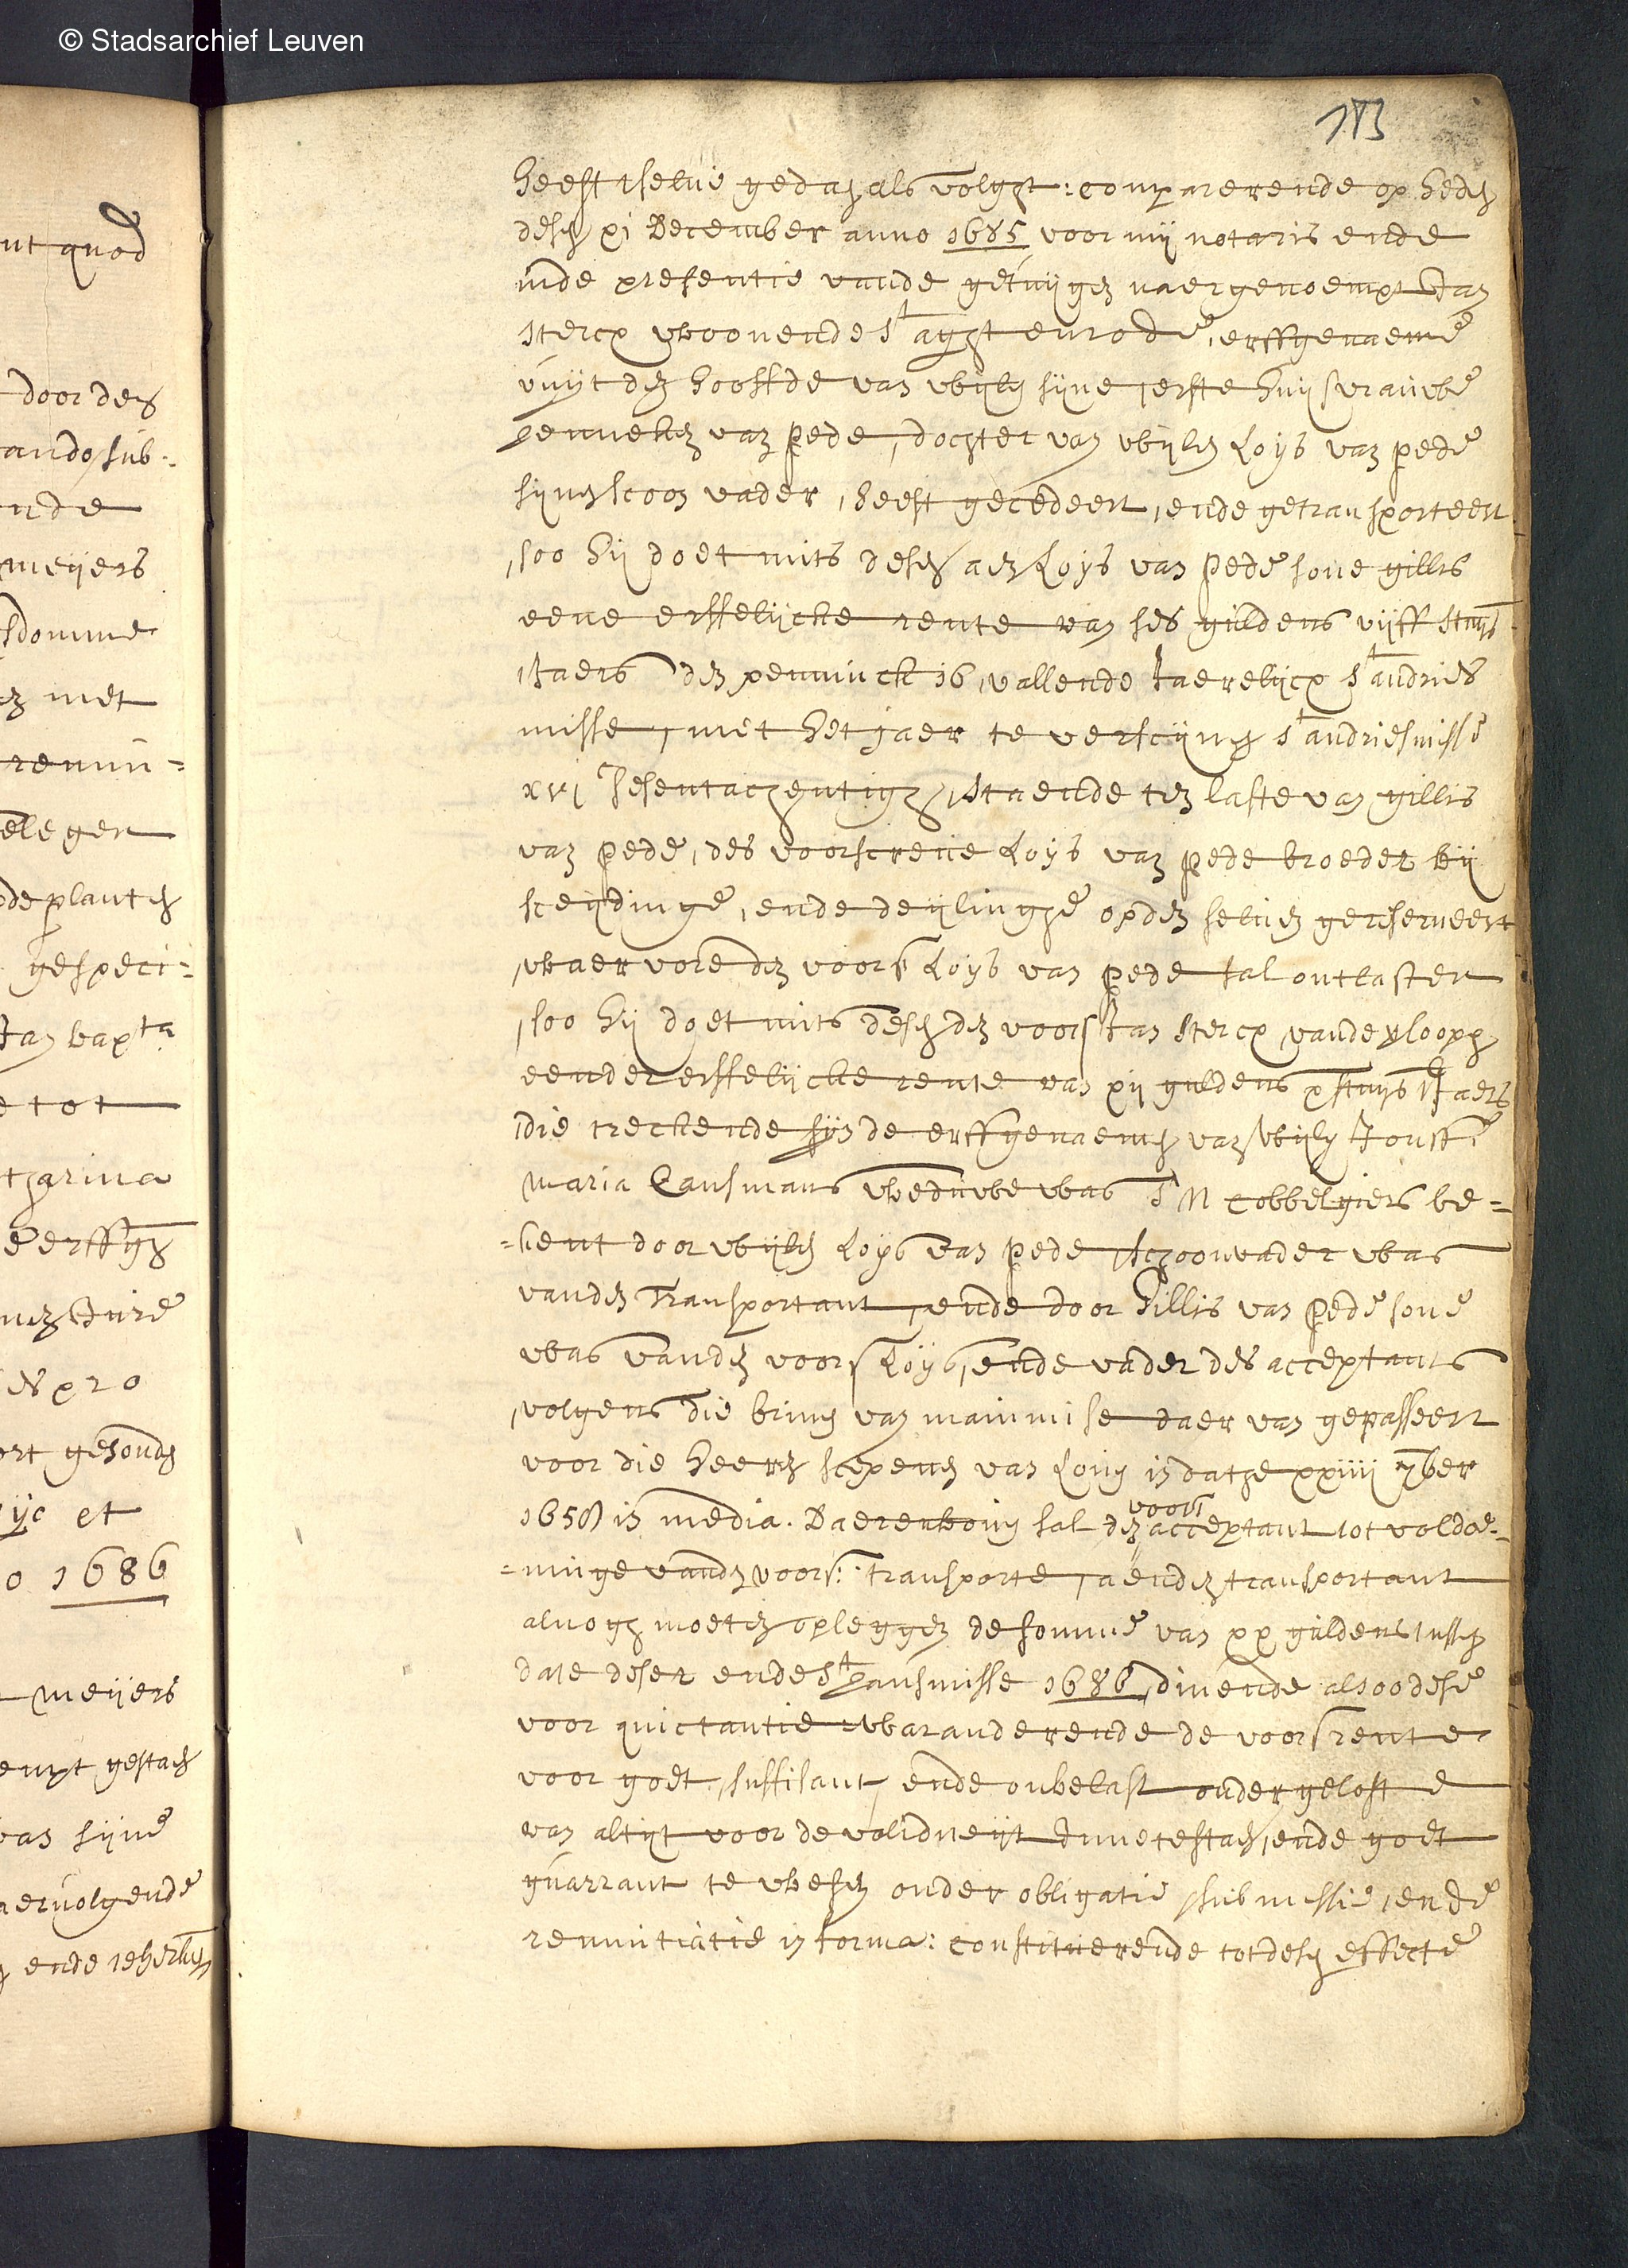 © Stadsarchief Leuven
183
heeft tselve gedaen als volght: comparerende op heden
desen xi December anno 1685 voor mij notaris ende
inde presentie vande getuijgen naergenoempt Jan
Stercx woonende St aght enrode, erffgenaeme
vuijt den hooffde van wijlen sijne ierste huijsvrauwe
Jenneken van pede, dochter van wijlen Loijs van pede
sijnen scoon vader, heeft gecedeert, ende getransporteert
soo hij doet mits desen aen Loijs van pede sone gillis
eene erffelijcke rente van ses guldens vijff stuvers
Jaers den penninck 16, vallende Jaerelijcx St andries
misse, met het jaer te verscijnen St andriesmisse
xvi C sesentachentigh, staende ten laste van gillis
van pede, des voorscreve Loijs van pede broeder bij
sceijdinge, ende deijlinghe opden selven gereserveert
waer vore den voors Loijs van pede sal ontlasten
soo hij doet mits desen den voors Jan Stercx vande
eender erffelijcke rente van xij guldens x stuvers Jaers
die treckende sijn de erffgenaemen van wijlen Jouffe
Maria Causmans weduwe was Sr N Cobbelgiers be-
-kent door wijlen Loijs van pede schoonvader was
vanden Transportant, ende door Gillis van pede sone
was vanden voors Loijs, ende vader des acceptants
volgens die brieven van mainmise daer van gepasseert
voor die heeren scepenen van Loven in dathe xxiiii 7ber
1650 in media. Daerenboven sal den acceptant tot voldoe-
voors
-ninge vanden voors: transporte, aenden transportant
alnogh moeten opleggen de somme van xx guldens tussen
date deser ende St Jansmisse 1686, dinende alsoo dese
voor quictantie waranderende de voors rente
voor goet, suffisant, ende onbelast onder geloft e
van altijt voor de validiteijt Inne te staen, ende goet
guarrant te wesen onder obligatie submissie, ende
renuntiatie in forma: constituerende tot desen effecte
nt quod
door den
ando sub-
nde
meijers
sdomme
en met
renun=
elegen
de planten
gespeci=
Jan bapta
e tot
tharina
es pro
ort gesonden
et
o 1686
meijers
empt gestaen
van sijne
aervolgende